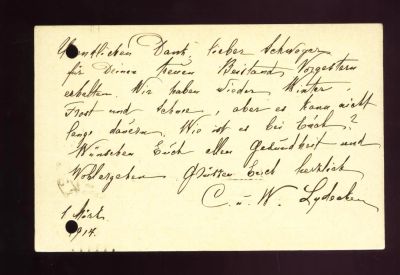 Herzlichen Dank, lieber Schwager
für Deinen treuen Beistand. Vorgestern
erhalten. Wir haben wieder Winter,
Frost und Schnee, aber es kann nicht
lange dauern. Wie ist es bei Euch?
Wünschen Euch allen Gesundheit und
Wohlergehen. Grüssen Euch herzlich
C. u. W.
1 März
1914.